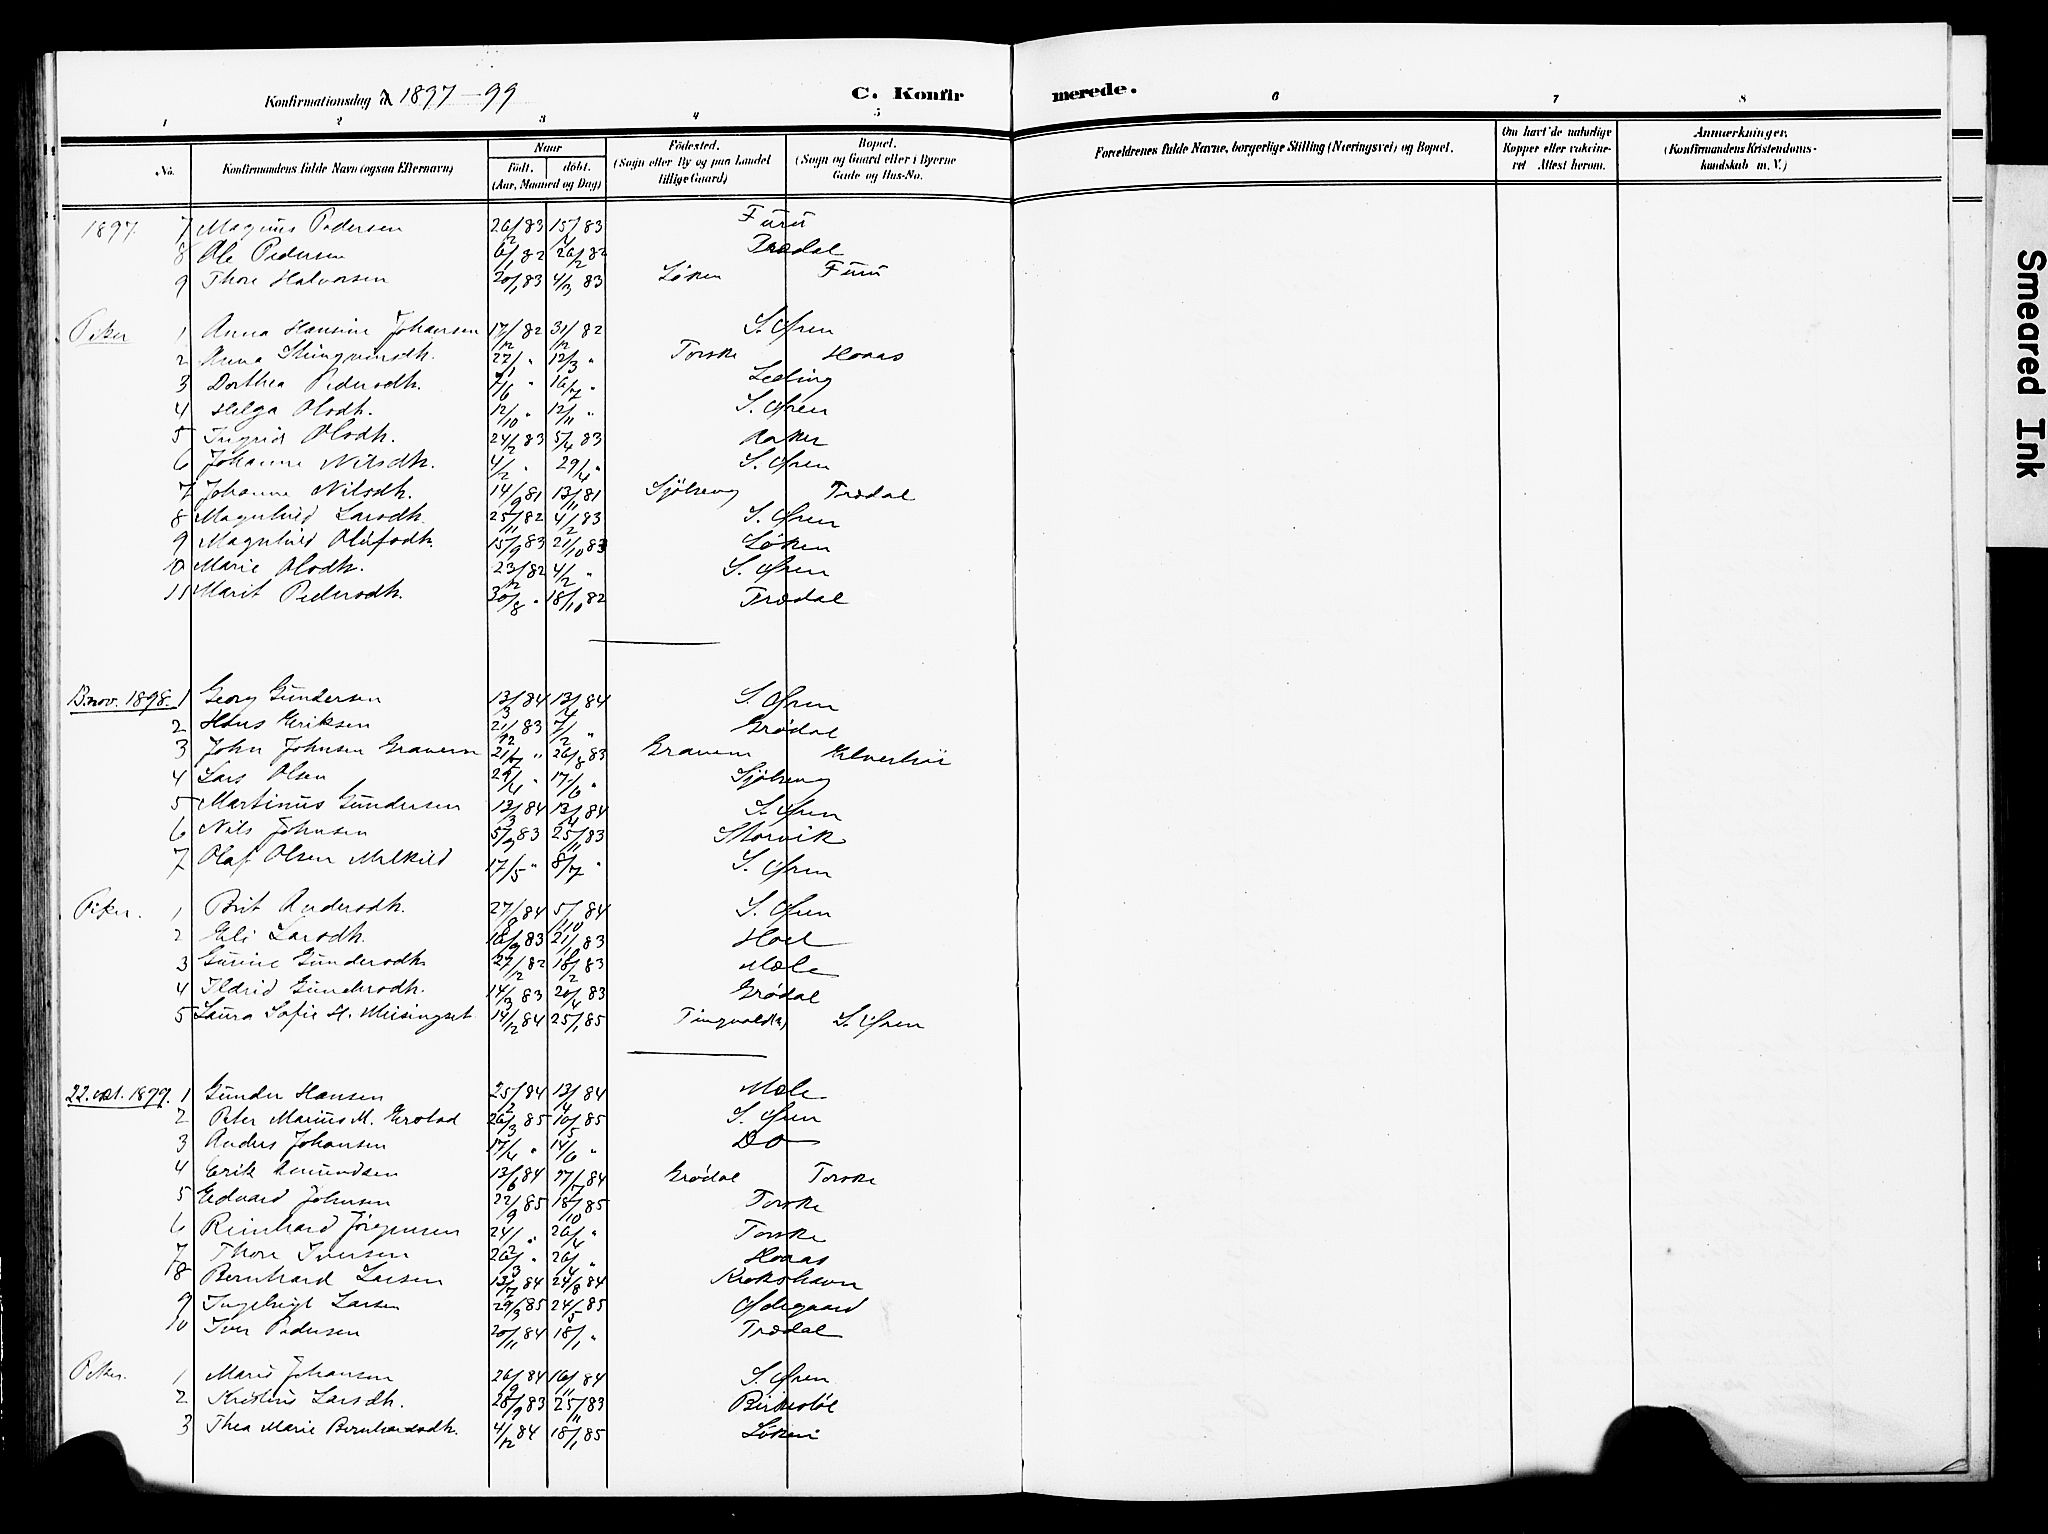 Konfirmationsdag 1897-99 C. Konfir merede.
1 2 3 4 5 6 7 8
No. Konfirmandens fulde Navn (ogsaa Efternavn) Naar Født. døbt. (Aar, Maaned og Dag) Fødested. (Sogn eller By og paa Landet tillige Gaard) Bopæl. (Sogn og Gaard eller i Byerne Gade og Hus-No. Forældrenes fulde Navne, borgerlige Stilling (Næringsvei) og Bopæl. Om havt de naturlige Kopper eller vaccineret Attest herom. Anmærkninger. (Konfirmandens Kristendomskundskab m. V.)
1897. 7 Magnus Pedersen 26/2 83 15/4 83 Furu
8 Ole Pedersen 6/1 82 26/2 82 Trædal
9 Thore Halvorsen 20/1 83 4/3 83 Løken Furu
Piker 1 Anna Hansine Johansen 17/12 82 31/12 82 S. Øren
2 Anna 27/1 " 12/3 " Torske Hoaas
3 Dorthea Pedersdh. 7/6 " 16/7 " Leding
4 Helga Olsdh. 12/10 " 12/11 " S. Øren
5 Ingrid Olsdh. 24/2 83 5/4 83 Aaker
6 Johanne Nilsdh. 4/2 " 29/4 " S. Øren
7 Johanne Nilsdh. 14/9 81 13/11 81 Sjølseng Trædal
8 Magnhild Larsdh. 25/11 82 4/2 83 S. Øren
9 Magnhild Olufsdh. 15/9 83 21/10 83 Løken
10 Marie Olsdh. 23/12 82 4/2 " S. Øren
11 Marit Pedersdh. 30/8 " 18/10 82 Trædal
13. nov. 1898. 1 Georg Gundersen 13/3 84 13/4 84 S. Øren
2 Hans Eriksen 21/12 83 7/2 " Grødal
3 John Johnsen Gravem 21/7 " 26/8 83 Gravem Elverhøi
4 Lars Olsen 29/4 " 17/6 " Sjølseng
5 Martinus Gundersen 13/3 84 13/4 84 S. Øren
6 Nils Johnsen 5/9 83 25/11 83 Storvik
7 Olaf Olsen Melkild 17/5 " 8/7 " S. Øren
Piker. 1 Brit Andersdh. 27/8 84 5/10 84 S. Øren
2 Eli Larsdh. 16/9 83 21/ 83 Hoel
3 Gurine Gundersdh 27/12 82 18/2 83 Mæle
4 Ildrid Gundersdh. 14/3 83 20/4 83 Grødal
5 Laura Sofie H. Meisingset 14/12 84 25/1 85 Tingvold(?) S. Øren
22. okt. 1899. 1 Gunder Hansen 25/2 84 13/4 84 Mæle
2 Peter Marius M. Erstad 26/3 85 10/5 85 S. Øren
3 Anders Johansen 17/4 " 14/6 " Do
4 Erik Amundsen 13/6 84 27/7 84 Grødal Torske
5 Edvard Johnsen 22/9 85 18/10 85 Torske
6 Reinhard Jørgensen 24/2 " 26/4 " Torske
7 Thore Iversen 26/3 " 26/4 " Hoaas
8 Bernhard Larsen 13/7 84 24/8 84 Krokshavn
9 Ingebrigt Larsen 29/3 85 24/5 85 Ødegaard
10 Iver Pedersen 20/11 84 18/1 " Trædal
Piker. 1 Marie Johansen 26/9 84 16/11 84 S. Øren
2 Kristine Larsdh. 28/9 83 25/11 83 Birkestøl
3 Thea Marie Bernhardsdh. 4/12 84 18/1 85 Løken
Smeared Ink